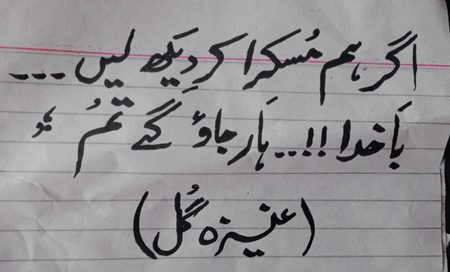 اگر ہم مُسکرا کر دیکھ لیں ---
بَاخدا !!... ہَار جاؤ گے تُم ؛
(عنیزہ گُل)